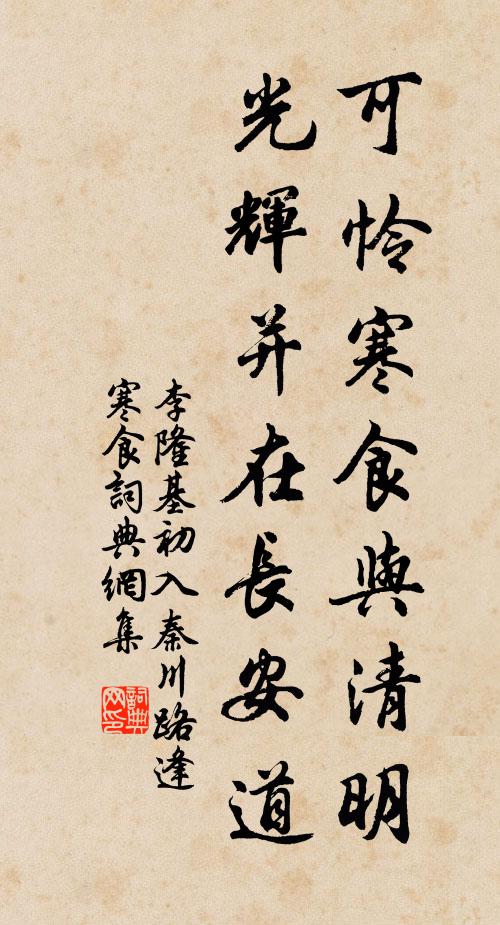 可憐寒食與清明
光輝并在長安道
李隆基初入秦川路逢
寒食詞典網集
詞典网印